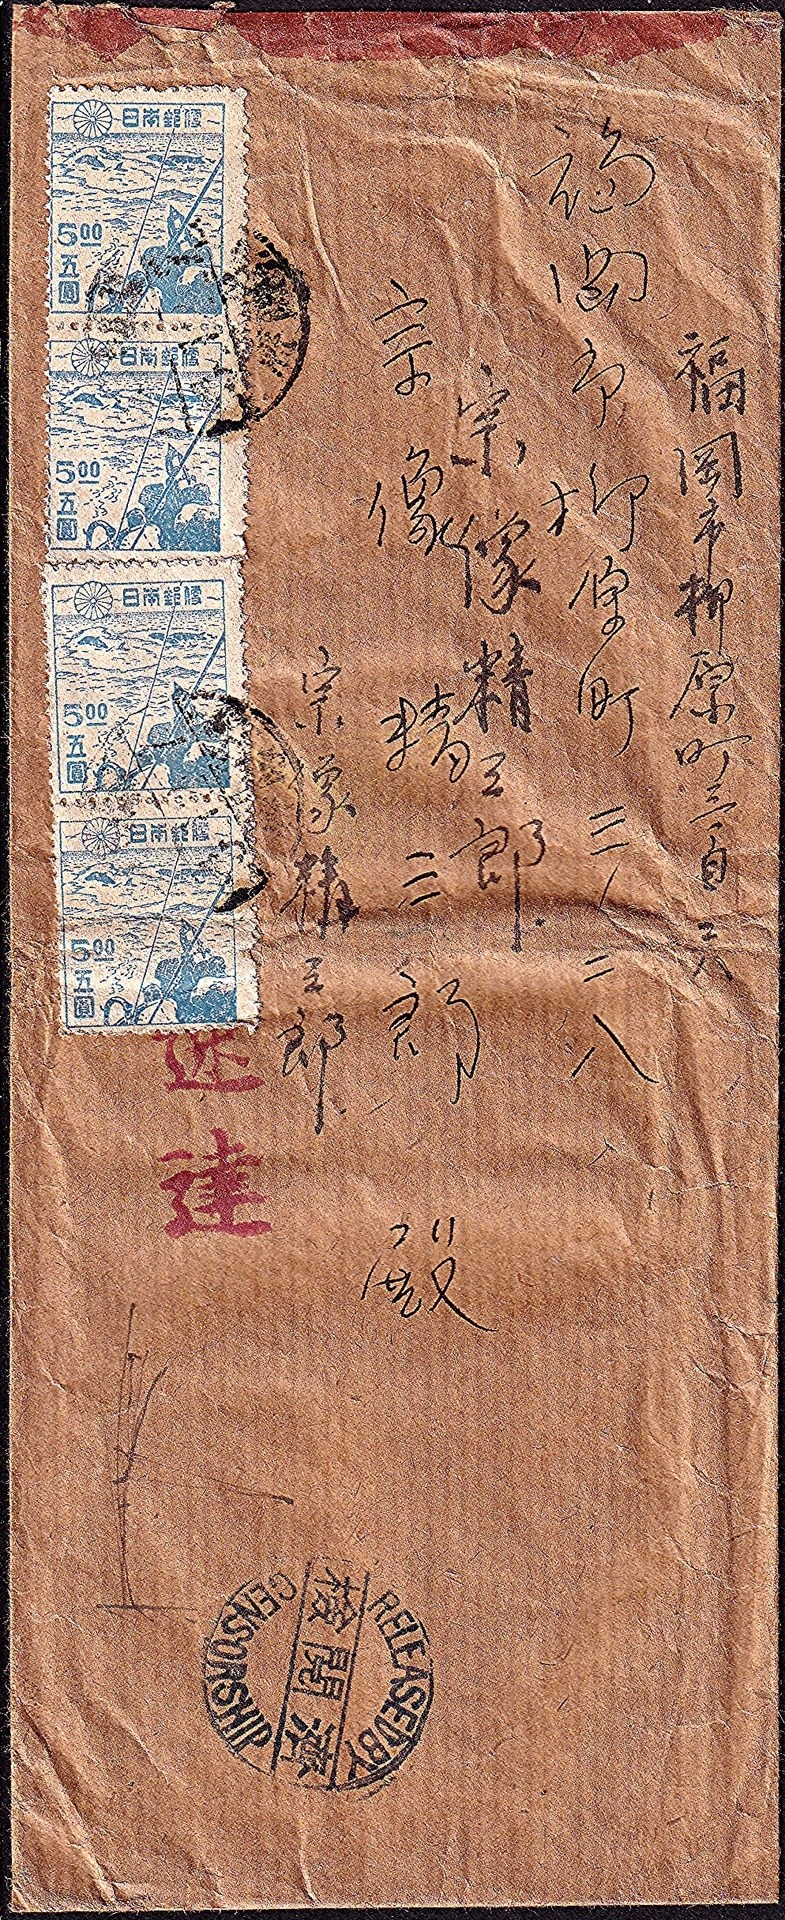 福岡市柳原町三百三八
福岡市柳原町三八二八
宗像精三郎
宗像精三郎 殿
宗像精三郎
速達
日本郵便
5.00
五圓
日本郵便
5.00
五圓
日本郵便
5.00
五圓
日本郵便
5.00
五圓
RELEASED BY
検閲済
CENSORSHIP